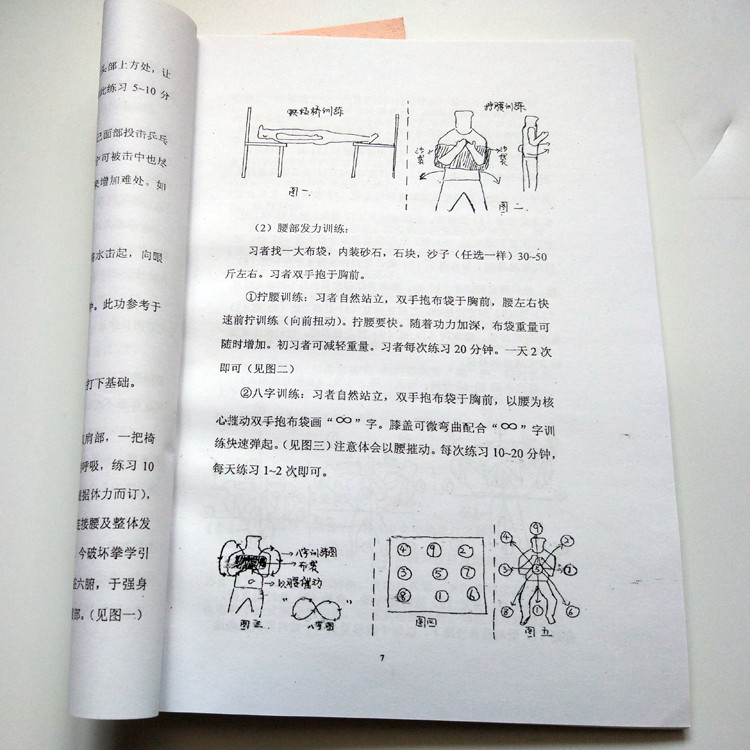 头部上方处，让
此练习 5~10 分
己面部投击乒乓
宁可被击中也尽
来增加难处。如
将水击起，向眼
中。此功参考于
打下基础。
肩部，一把椅
呼吸，练习 10
根据体力而订），
连接腰及整体发
今破坏拳学引
五六腑，于强身
部。（见图一）
铁板桥训练
图一
拧腰训练
沙袋
沙袋
图二
（2）腰部发力训练：
习者找一大布袋，内装砂石，石块，沙子（任选一样）30~50
斤左右。习者双手抱于胸前。
①拧腰训练：习者自然站立，双手抱布袋于胸前，腰左右快
速前拧训练（向前扭动）。拧腰要快。随着功力加深，布袋重量可
随时增加。初习者可减轻重量。习者每次练习 20 分钟。一天 2 次
即可（见图二）
②八字训练：习者自然站立，双手抱布袋于胸前，以腰为核
心摧动双手抱布袋画“∞”字。膝盖可微弯曲配合“∞”字训
练快速弹起。（见图三）注意体会以腰摧动。每次练习 10~20 分钟，
每天练习 1~2 次即可。
八字训练图
布袋
以腰摧动
图三
“ ”
八字图
④ ⑨ ②
③ ⑤ ⑦
⑧ ① ⑥
图四
⑨
④ ②
③ ⑤ ⑦
⑧ ① ⑥
图五
7